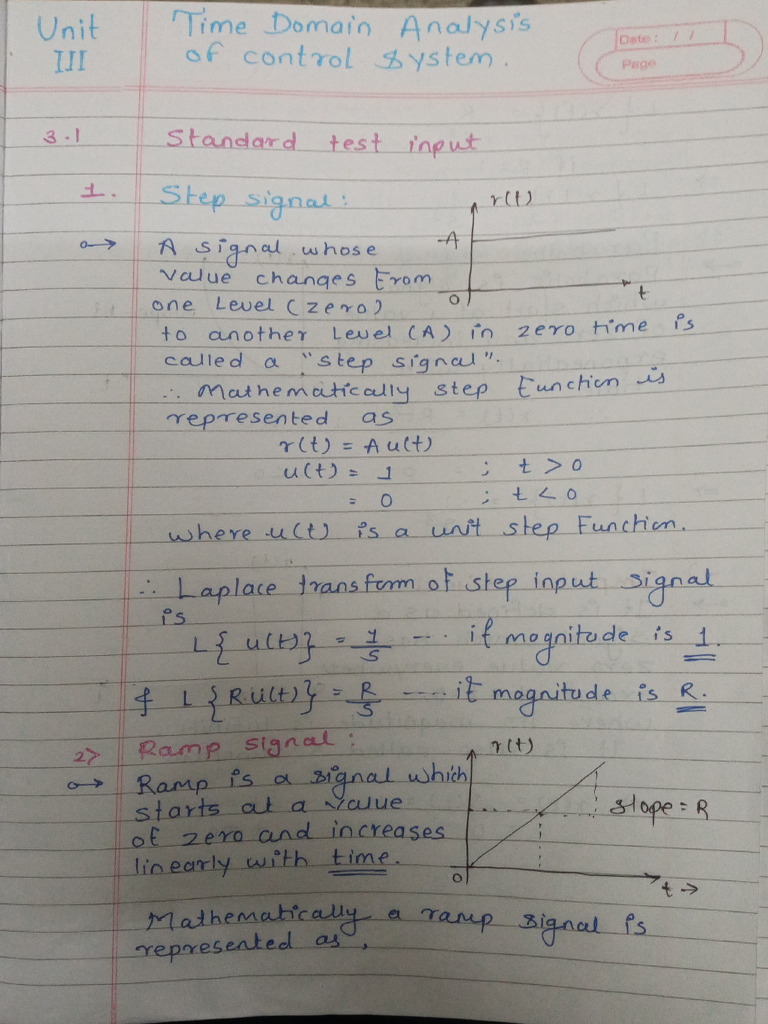 Unit
III
Time Domain Analysis
of control system.
Date: / /
Page
3.1 Standard test input
1. Step signal:
r(t)
A
0
t
A signal whose
value changes from
one Level (zero)
to another Level (A) in zero time is
called a "step signal".
∴ Mathematically step Function is
represented as
r(t) = A u(t)
u(t) = 1 ; t > 0
= 0 ; t < 0
where u(t) is a unit step Function.
∴ Laplace transform of step input signal
is
L{ u(t)} = 1/s ---- if magnitude is 1.
& L {R.u(t)} = R/s ----- if magnitude is R.
2> Ramp signal:
r(t)
slope = R
0
t →
Ramp is a signal which
starts at a value
of zero and increases
linearly with time.
Mathematically a ramp signal is
represented as,